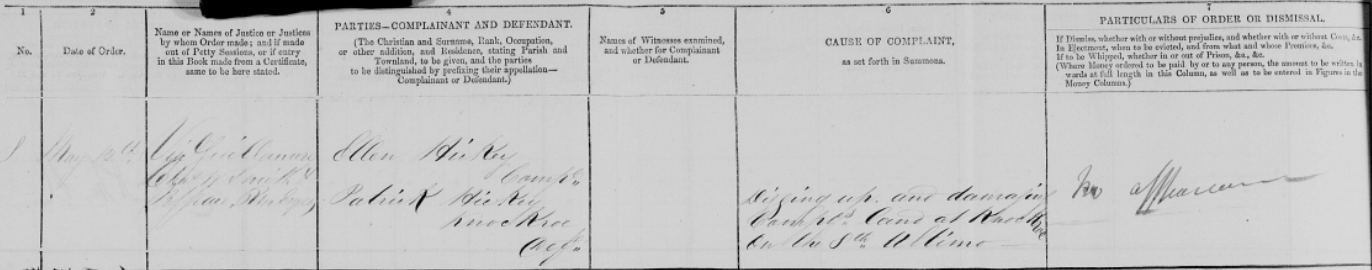 1
2
4
5
6
7
No.
Date of Order.
Name or Names of Justice or Justices
by whom Order made; and if made
out of Petty Sessions, or if entry
in this Book made from a Certificate,
same to be here stated.
PARTIES—COMPLAINANT AND DEFENDANT.
(The Christian and Surname, Rank, Occupation,
or other addition, and Residence, stating Parish and
Townland, to be given, and the parties
to be distinguished by prefixing their appellation—
Complainant or Defendant.)
Names of Witnesses examined,
and whether for Complainant
or Defendant.
CAUSE OF COMPLAINT,
as set forth in Summons.
PARTICULARS OF ORDER OR DISMISSAL.
If Dismiss, whether with or without prejudice, and whether with or without Costs, &c.
In Ejectment, when to be evicted, and from what and whose Premises, &c.
If to be Whipped, whether in or out of Prison, &c., &c.
(Where Money ordered to be paid by or to any person, the amount to be written in
words at full length in this Column, as well as to be entered in Figures in the
Money Columns.)
May 12th
Vis Guillamore
Ellen Hickey
Compt
Patrick Hickey
Knockroe
Deft
Digging up and damaging
Compts land at Knockroe
on the 8th Ultimo
No appearance